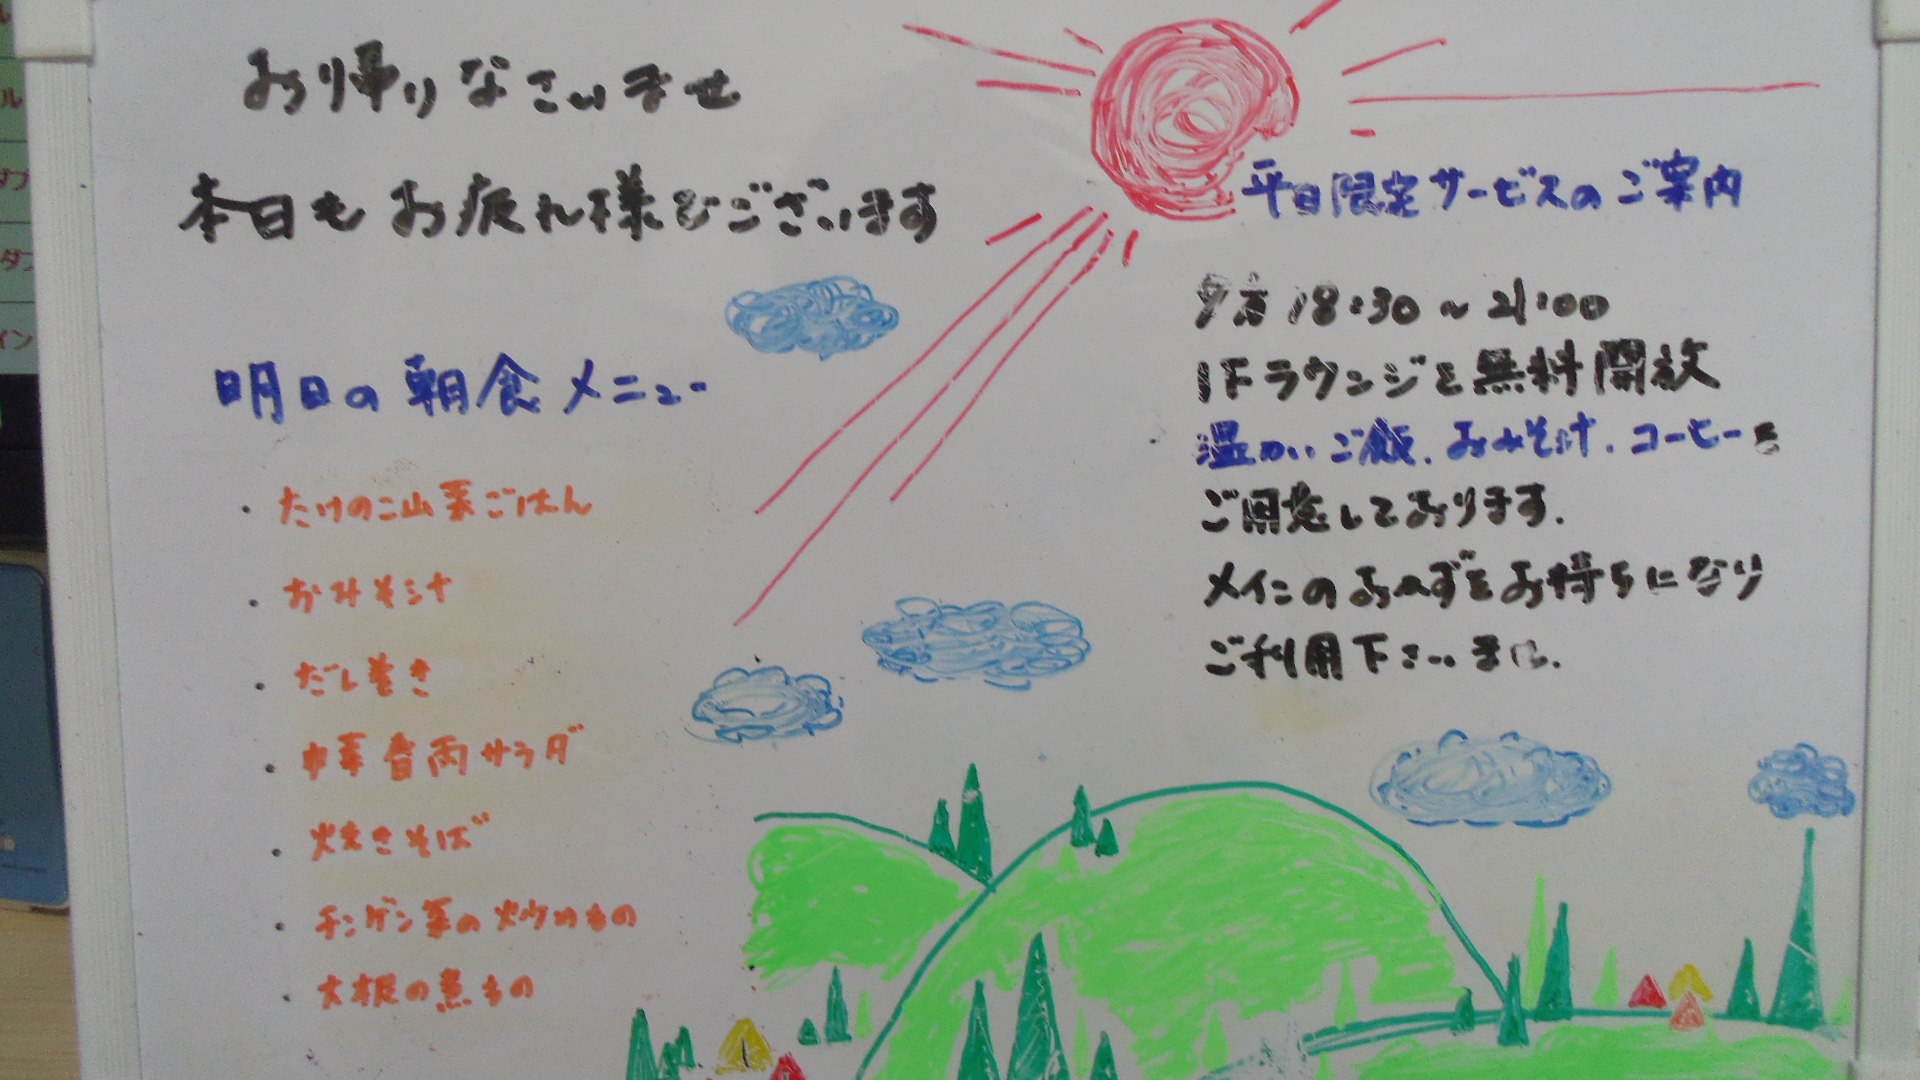 お帰りなさいませ
本日もお疲れ様でございます
明日の朝食メニュー
・たけのこ山菜ごはん
・おみそ汁
・だし巻き
・中華春雨サラダ
・焼きそば
・チンゲン菜の炒めもの
・大根の煮もの
平日限定サービスのご案内
夕方 18:30～21:00
1Fラウンジを無料開放
温かいご飯.おみそ汁.コーヒーを
ご用意しております.
メインのおかずをお持ちになり
ご利用下さいませ.